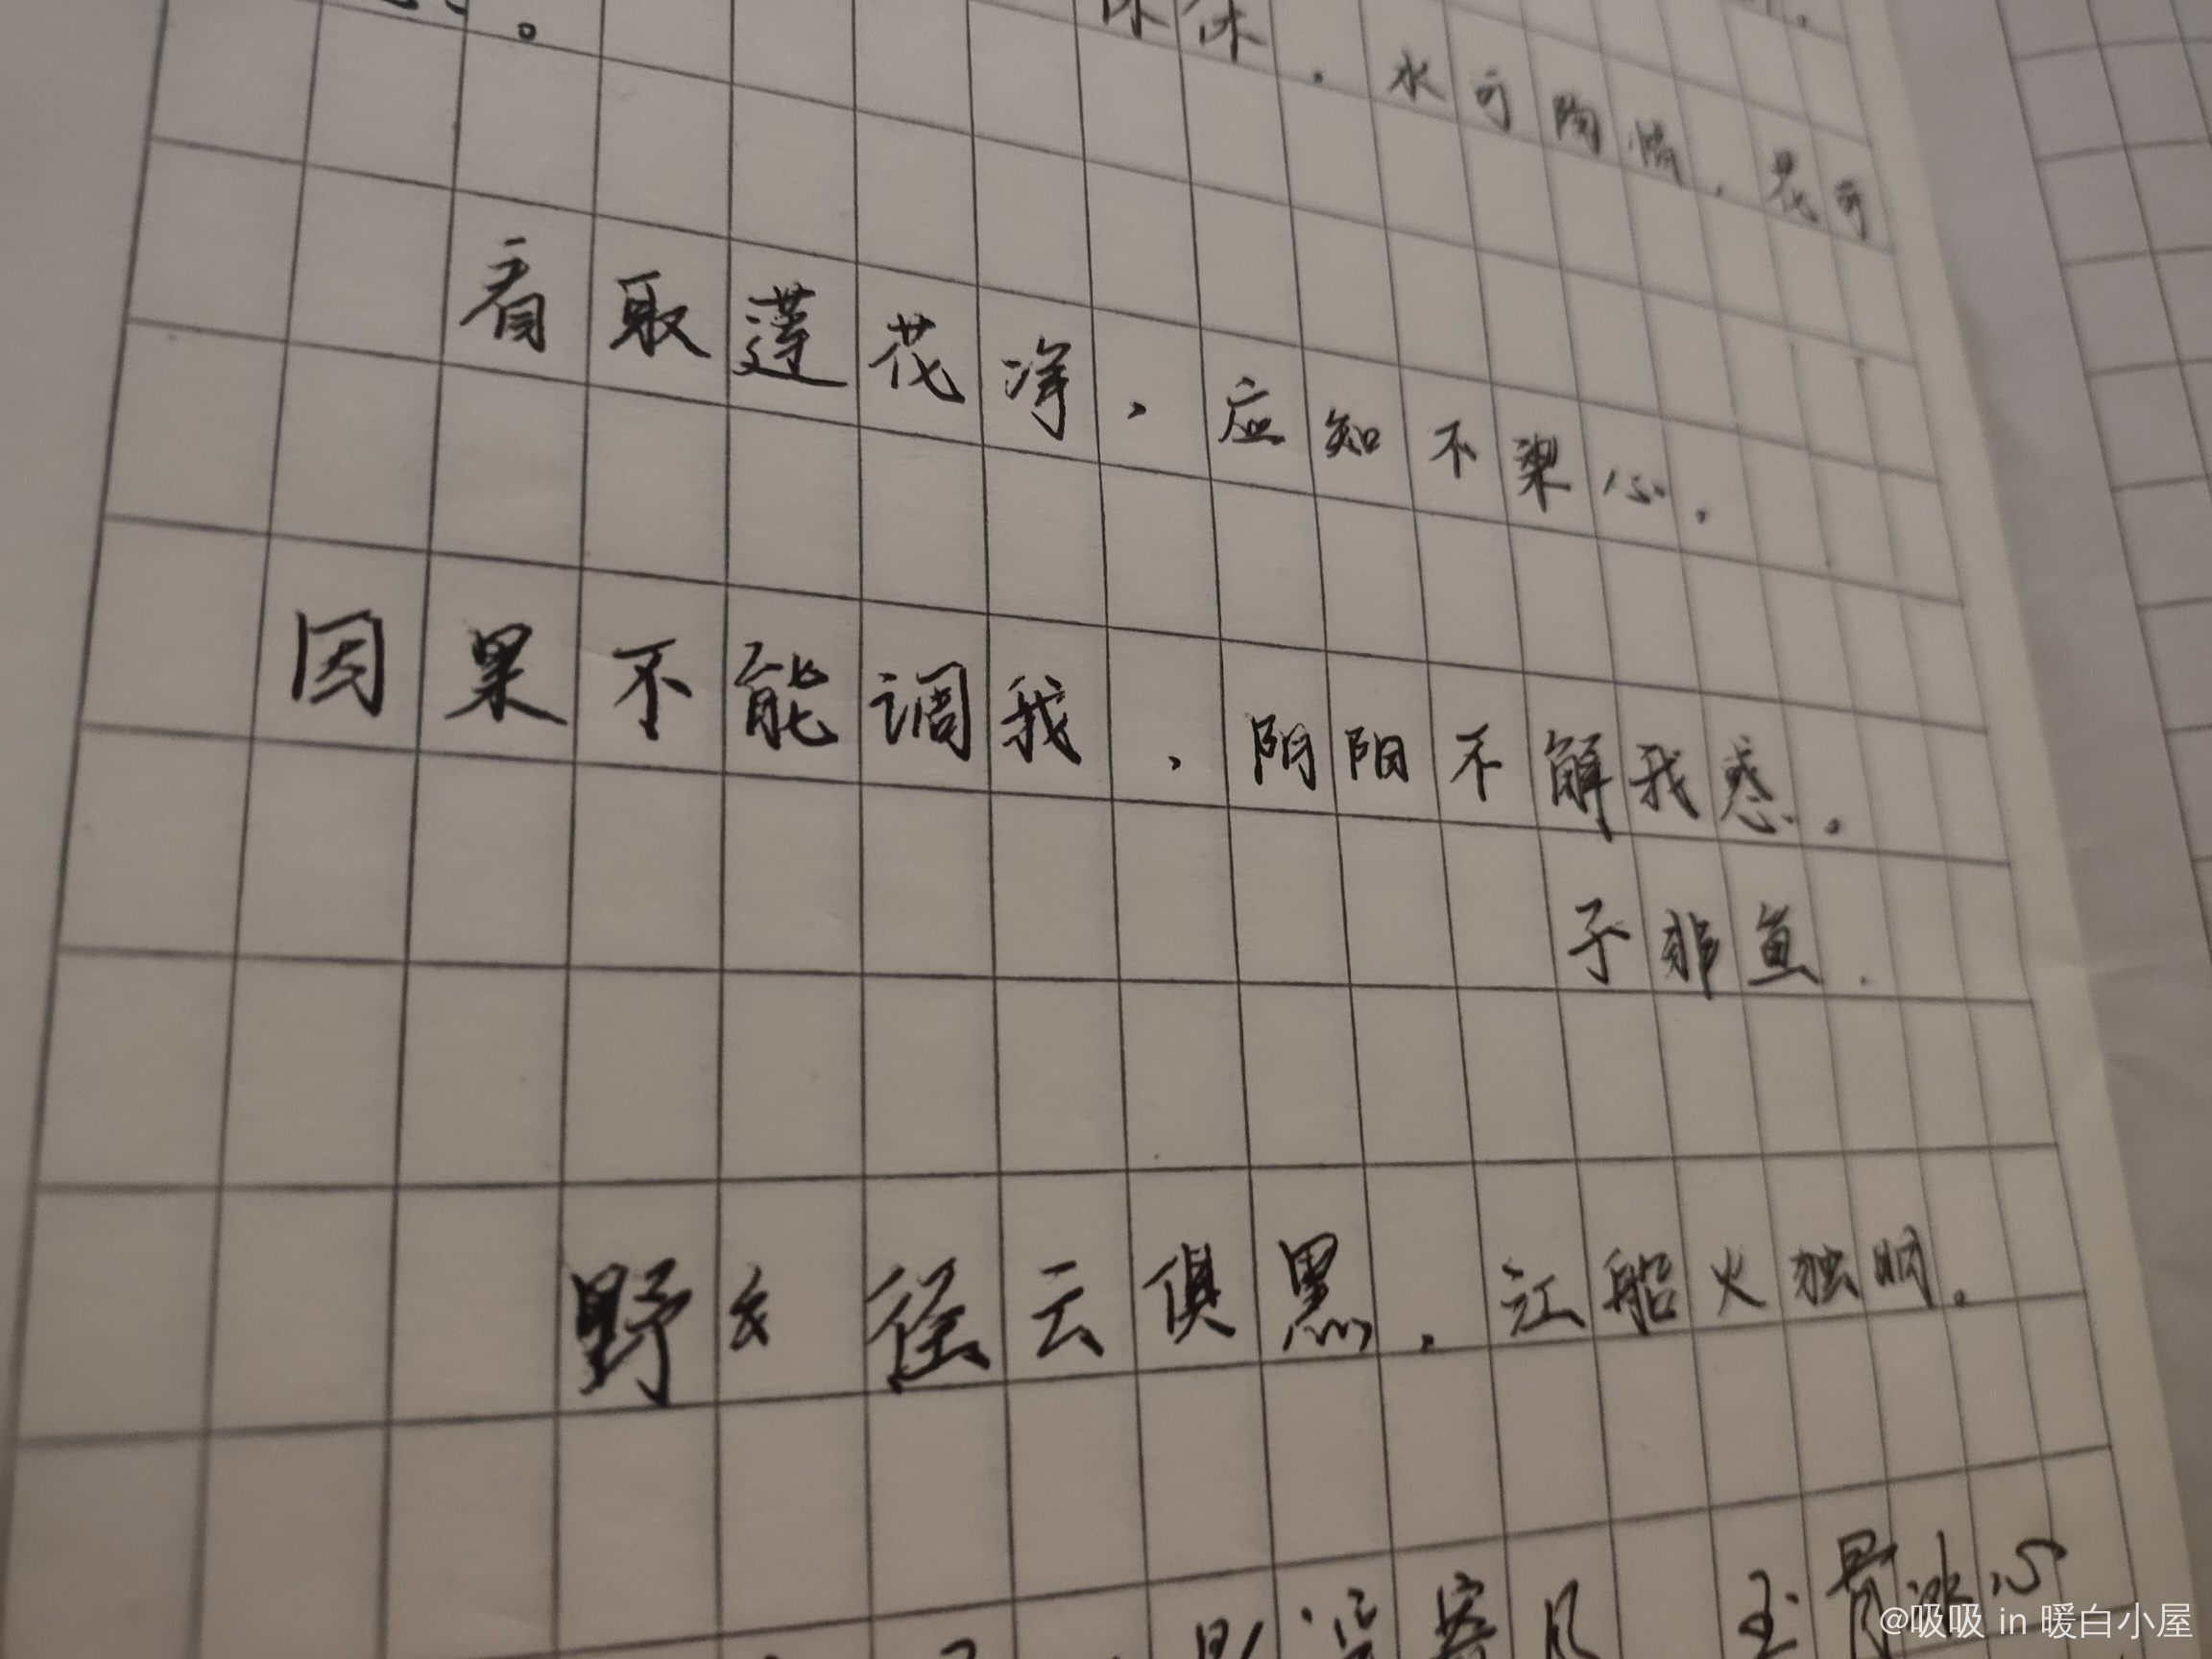 休休，水可陶情，花可
看取莲花净，应知不染心。
因果不能调我，阴阳不解我惑。
子非鱼.
野径云俱黑，江船火独明。
玉骨冰心
@吸吸 in 暖白小屋